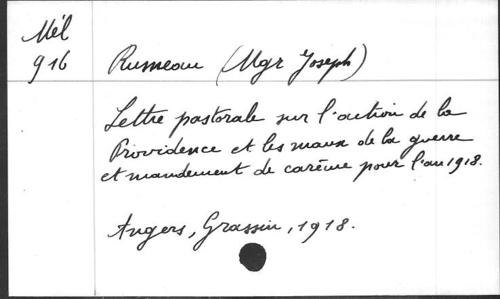 Mél
916
Rumeau (Mgr Joseph)
Lettre pastorale sur l'action de la
Providence et les maux de la guerre
et mandement de carême pour l'an 1918.
Angers, Grassin, 1918.